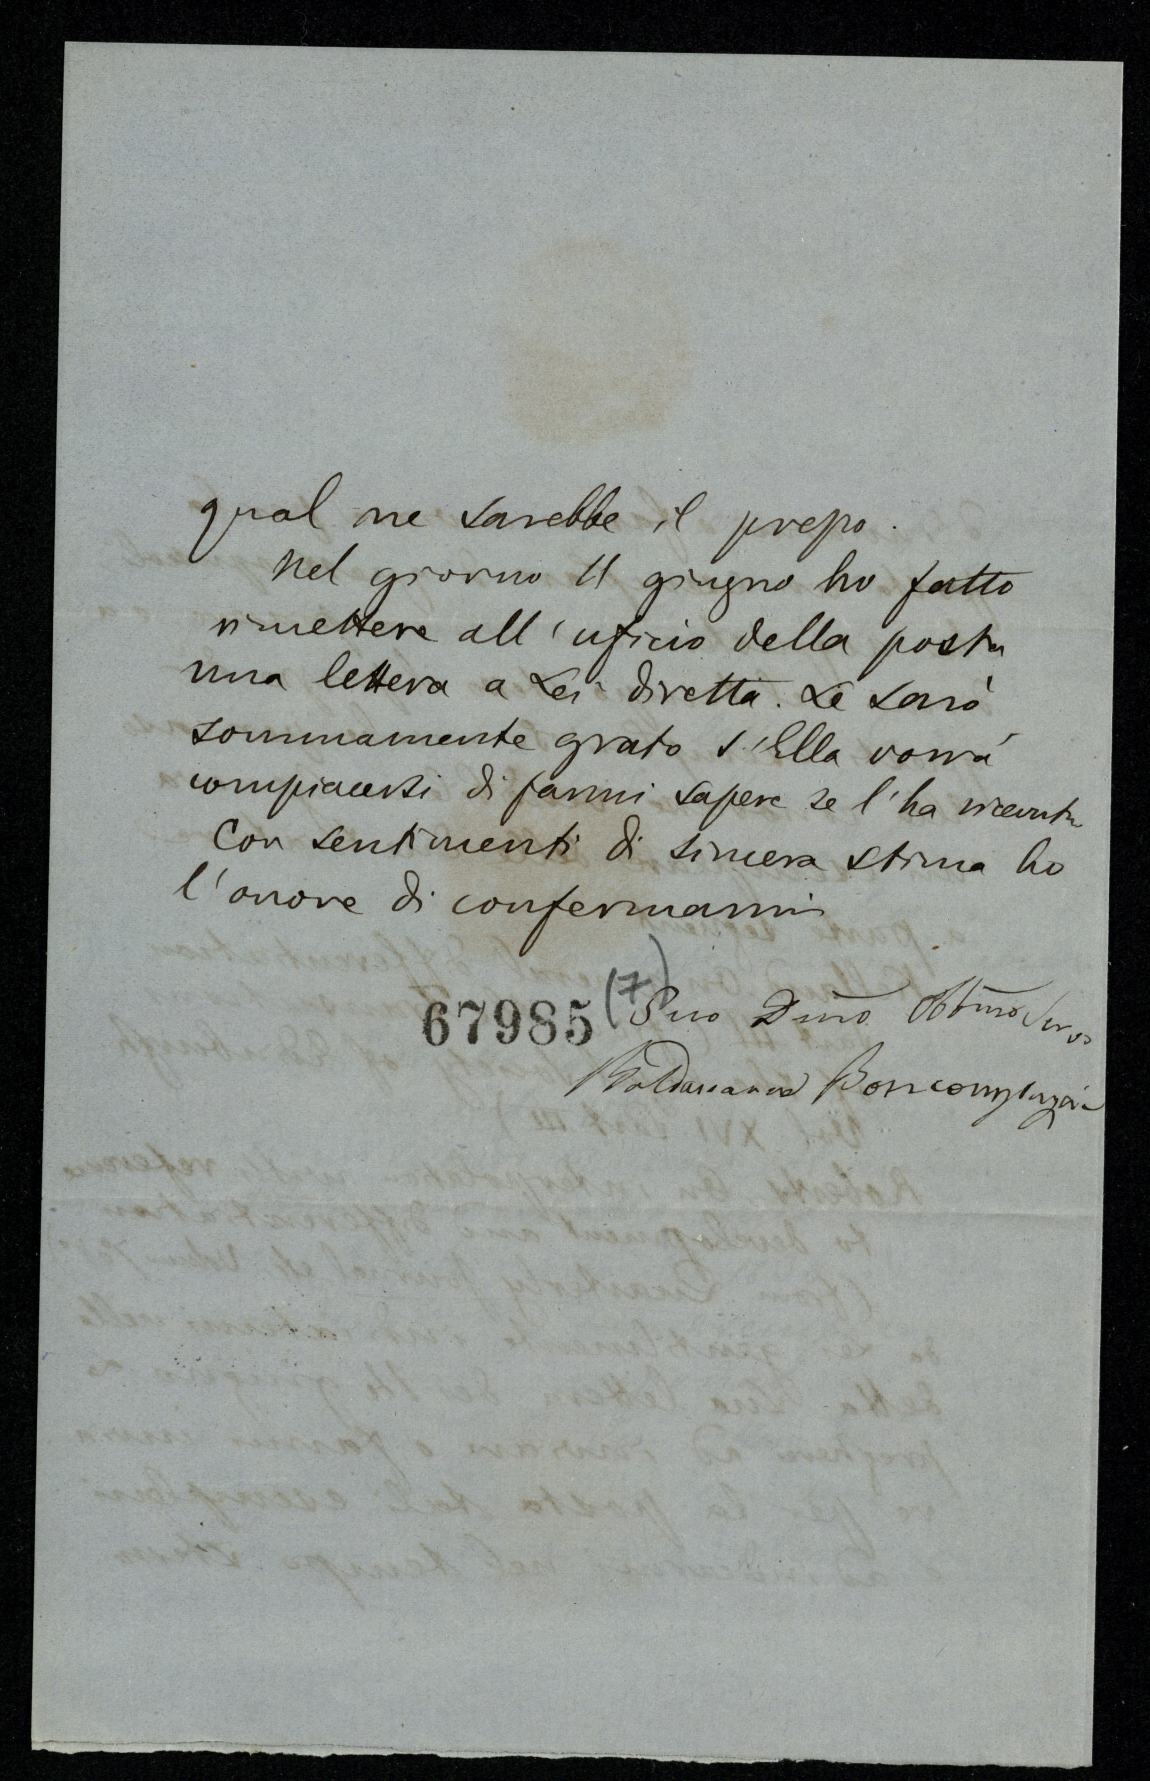 qual ne sarebbe il prezzo.
Nel giorno 11 giugno ho fatto
rimettere all'uficio della posta
una lettera a Lei diretta. Le sarò
sommamente grato s'Ella vorrà
compiacersi di farmi sapere se l'ha ricevuta
Con sentimenti di sincera stima ho
l'onore di confermarmi
67985 (7) Suo Dmo Obbmo Servo
Baldassarre Boncompagni